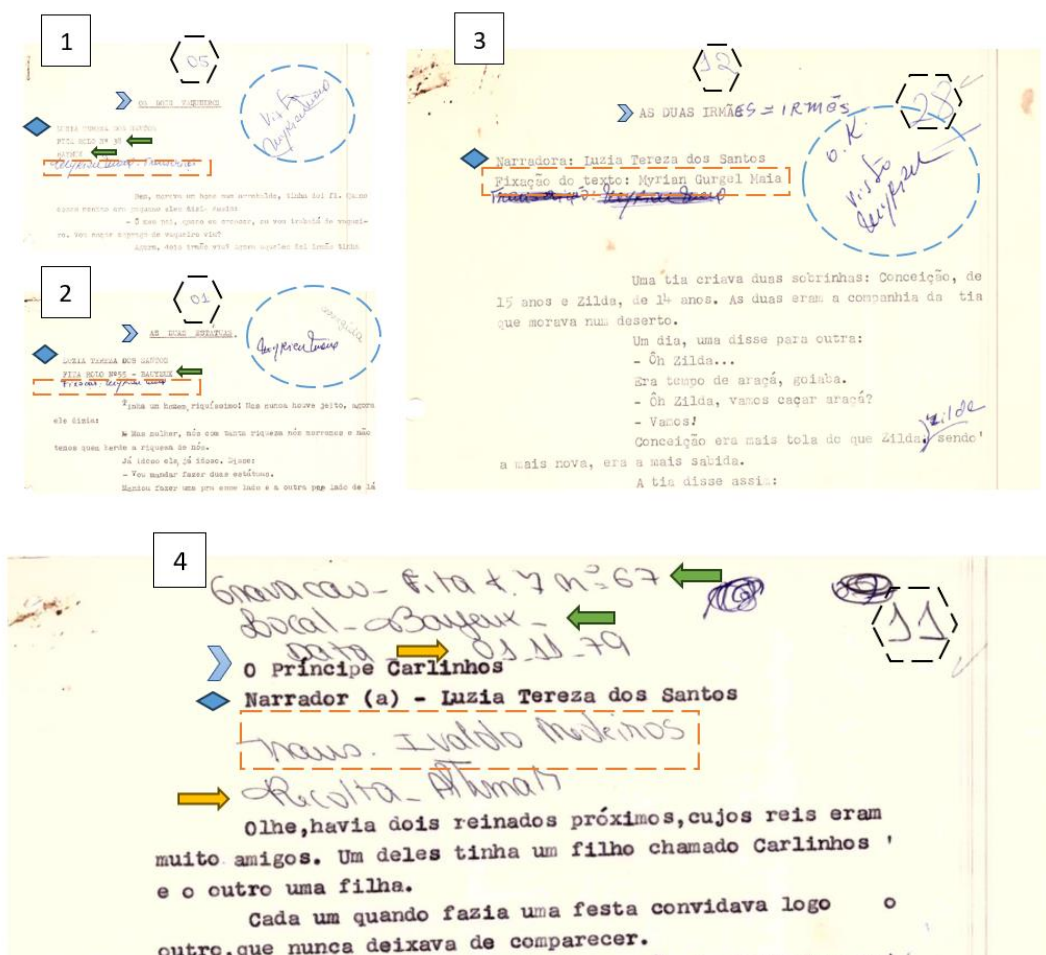 1
05
OS DOIS VAQUEIROS
LUZIA TEREZA DOS SANTOS
FITA ROLO Nº 38
BAYEUX
Visto
Bem, morava um home num arrebalde, tinha doi fi. Quano
- Ô meu pai, quero eu crescer, eu vou trabaiá de vaquei-
ro. Vou caçar emprego de vaqueiro viu?
Agora, dois irmão viu? Agora aqueles foi irmão tinha
2
01
AS DUAS ESTÁTUAS.
corrigida
Myrian Maia
LUZIA TEREZA DOS SANTOS
FITA ROLO Nº55 - BAYEUX
Fixação: Myrian Maia
Tinha um homem riquíssimo! Mas nunca houve jeito, agora
ele dizia:
- Mas mulher, nós com tanta riqueza nós morremos e não
temos quem herde a riqueza de nós.
Já idoso ele, já idoso. Disse:
- Vou mandar fazer duas estátuas.
Mandou fazer uma pra esse lado e a outra pro lado de lá
3
12
AS DUAS IRMÃES = IRMÃS
28
O.K
Visto
Narradora: Luzia Tereza dos Santos
Fixação do texto: Myrian Gurgel Maia
Uma tia criava duas sobrinhas: Conceição, de
15 anos e Zilda, de 14 anos. As duas eram a companhia da tia
que morava num deserto.
Um dia, uma disse para outra:
- Ôh Zilda...
Era tempo de araçá, goiaba.
- Ôh Zilda, vamos caçar araçá?
- Vamos!
Conceição era mais tola do que Zilda, sendo'
zilda
a mais nova, era a mais sabida.
A tia disse assim:
4
Gravacao - Fita nº 67
Local - Bayeux -
Data 01-11-79
11
O Príncipe Carlinhos
Narrador (a) - Luzia Tereza dos Santos
Trans. Ivaldo Medeiros
Recolta - Altimar
Olhe,havia dois reinados próximos,cujos reis eram
muito amigos. Um deles tinha um filho chamado Carlinhos '
e o outro uma filha.
Cada um quando fazia uma festa convidava logo o
outro,que nunca deixava de comparecer.